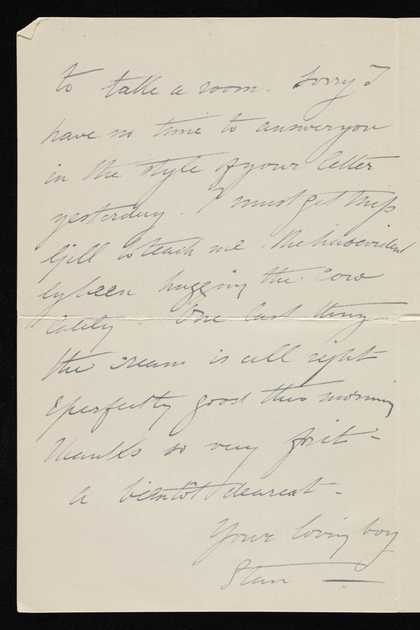 to take a room. Sorry I
have no time to answer you
in the style of your letter
yesterday. I must get
to teach me. He has evident
ly been hugging the cow
lately. One last thing
the cream is all right
& perfectly good this morning
Thanks so very for it -
a bientôt dearest -
Your loving boy
Stan